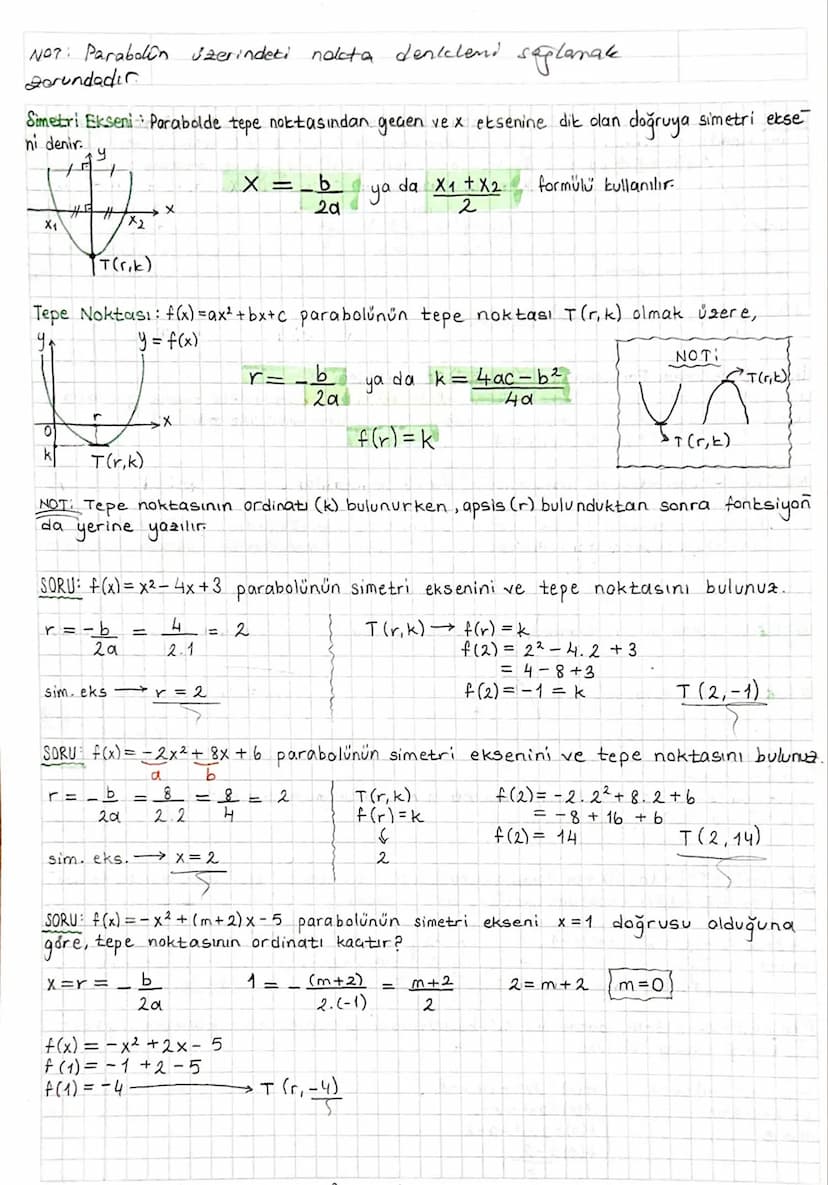 NOT: Parabolün üzerindeki nokta denklemi sağlamak
zorundadır.
Simetri Ekseni: Parabolde tepe noktasından geçen ve x eksenine dik olan doğruya simetri ekse-
ni denir.
y
x = -b/2a ya da x1+x2/2 formülü kullanılır.
x
x1 x2
T(r,k)
Tepe Noktası: f(x)=ax²+bx+c parabolünün tepe noktası T(r,k) olmak üzere,
y y=f(x)
NOT:
r = -b/2a ya da k = 4ac-b²/4a
T(r,k)
r x
0
f(r)=k
T(r,k)
k T(r,k)
NOT: Tepe noktasının ordinatı (k) bulunurken, apsis (r) bulunduktan sonra fonksiyon
da yerine yazılır.
SORU: f(x)=x²-4x+3 parabolünün simetri eksenini ve tepe noktasını bulunuz.
r = -b/2a = 4/2.1 = 2 T(r,k) → f(r)=k
f(2) = 2²-4.2+3
= 4-8+3
sim. eks → r = 2 f(2) = -1 = k T(2,-1)
SORU: f(x) = -2x²+8x+6 parabolünün simetri eksenini ve tepe noktasını bulunuz.
a b
r = -b/2a = 8/2.2 = 8/4 = 2 T(r,k) f(2) = -2.2²+8.2+6
f(r)=k = -8+16+6
↓ f(2) = 14 T(2,14)
sim. eks. → x=2 2
SORU: f(x) = -x²+(m+2)x-5 parabolünün simetri ekseni x=1 doğrusu olduğuna
göre, tepe noktasının ordinatı kaçtır?
x=r = -b/2a 1 = -(m+2)/2.(-1) = m+2/2 2=m+2 m=0
f(x) = -x²+2x-5
f(1) = -1+2-5
f(1) = -4 → T(r,-4)